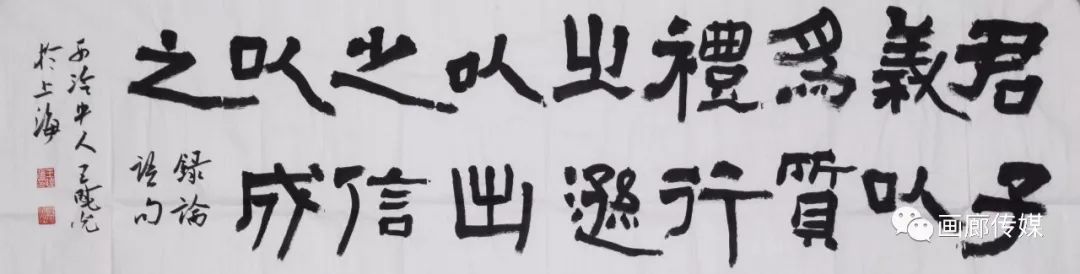 君子
義以
爲質
禮行
之遜
以出
之信
以成
之
録論
語句
西泠中人
於上海
画廊传媒